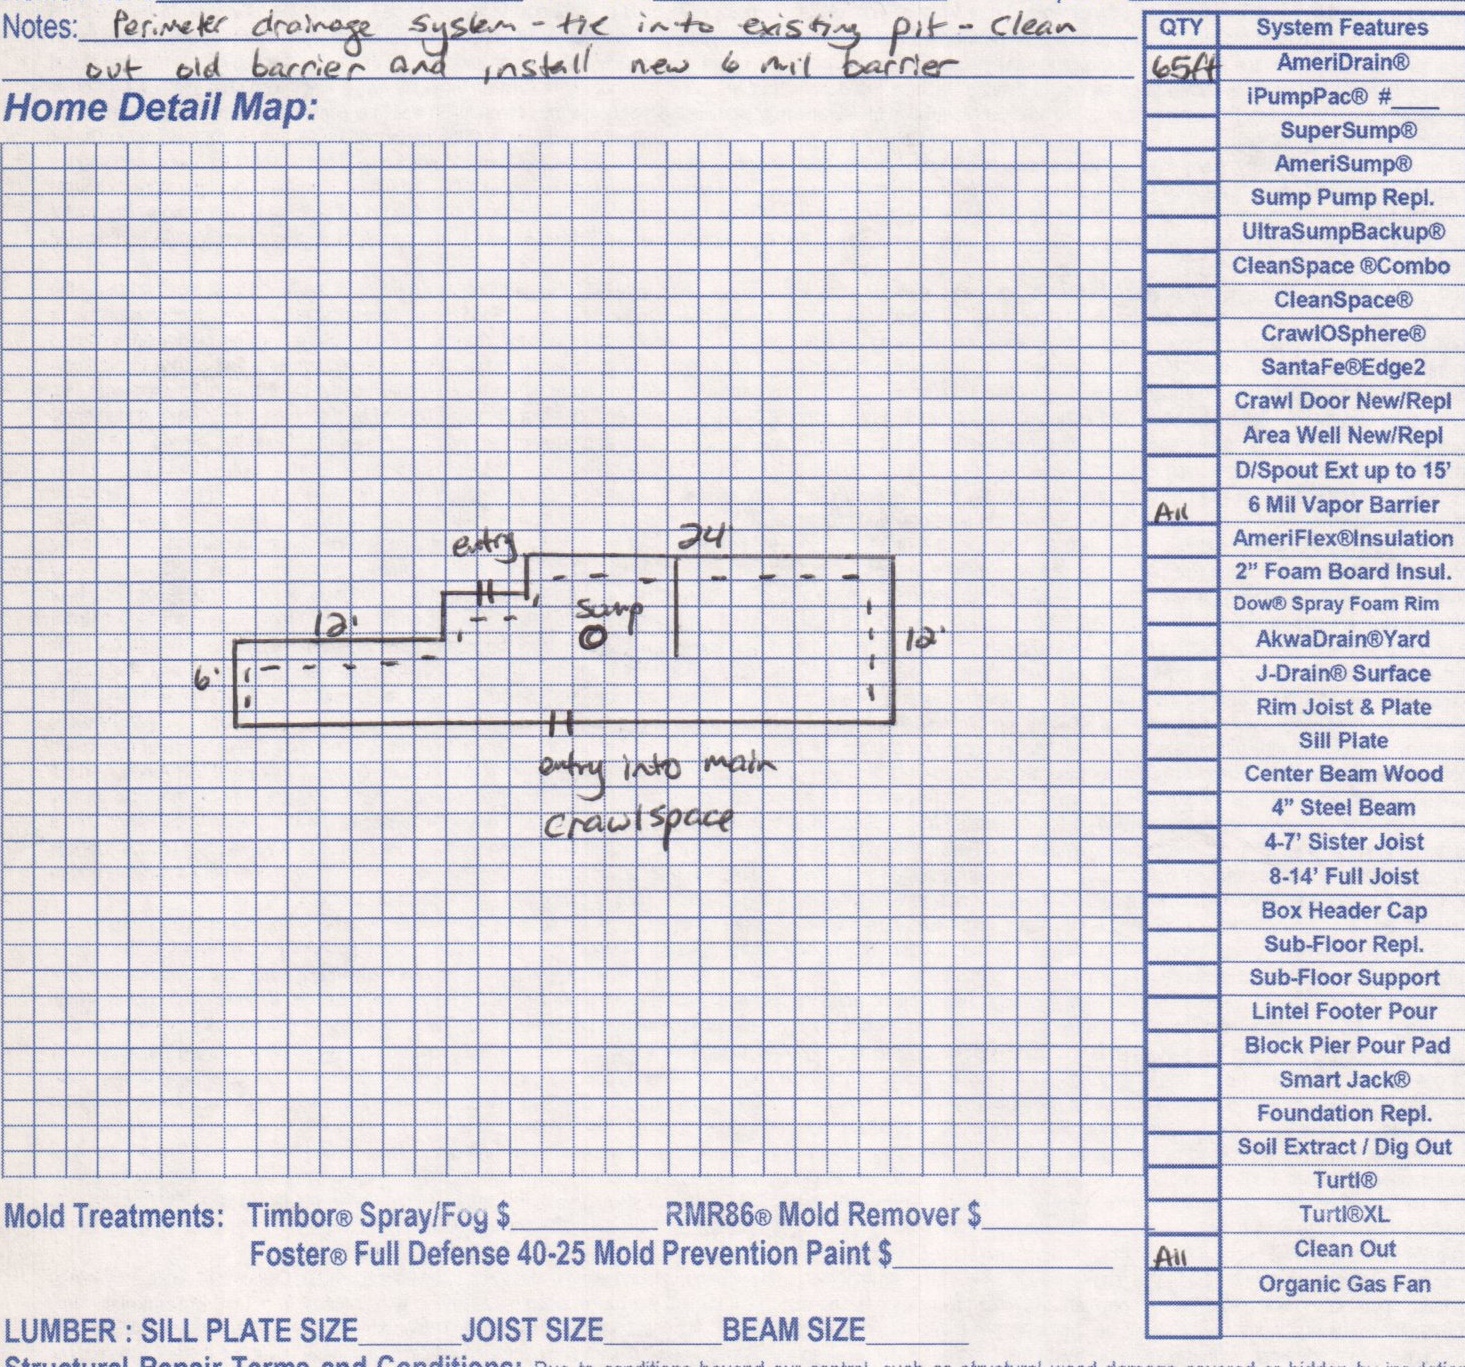 Notes: Perimeter drainage system - tie into existing pit - clean
out old barrier and install new 6 mil barrier
Home Detail Map:
QTY System Features
65ft AmeriDrain®
iPumpPac® #____
SuperSump®
AmeriSump®
Sump Pump Repl.
UltraSumpBackup®
CleanSpace ®Combo
CleanSpace®
CrawlOSphere®
SantaFe®Edge2
Crawl Door New/Repl
Area Well New/Repl
D/Spout Ext up to 15'
All 6 Mil Vapor Barrier
AmeriFlex®Insulation
2" Foam Board Insul.
Dow® Spray Foam Rim
AkwaDrain®Yard
J-Drain® Surface
Rim Joist & Plate
Sill Plate
Center Beam Wood
4" Steel Beam
4-7' Sister Joist
8-14' Full Joist
Box Header Cap
Sub-Floor Repl.
Sub-Floor Support
Lintel Footer Pour
Block Pier Pour Pad
Smart Jack®
Foundation Repl.
Soil Extract / Dig Out
Turtl®
Turtl®XL
All Clean Out
Organic Gas Fan
entry 24'
12' Sump 12'
6'
entry into main
crawlspace
Mold Treatments: Timbor® Spray/Fog $________ RMR86® Mold Remover $________
Foster® Full Defense 40-25 Mold Prevention Paint $________
LUMBER : SILL PLATE SIZE______JOIST SIZE_______BEAM SIZE______
Structural Repair Terms and Conditions: Due to conditions beyond our control, such as structural wood damage covered or hidden by insulation